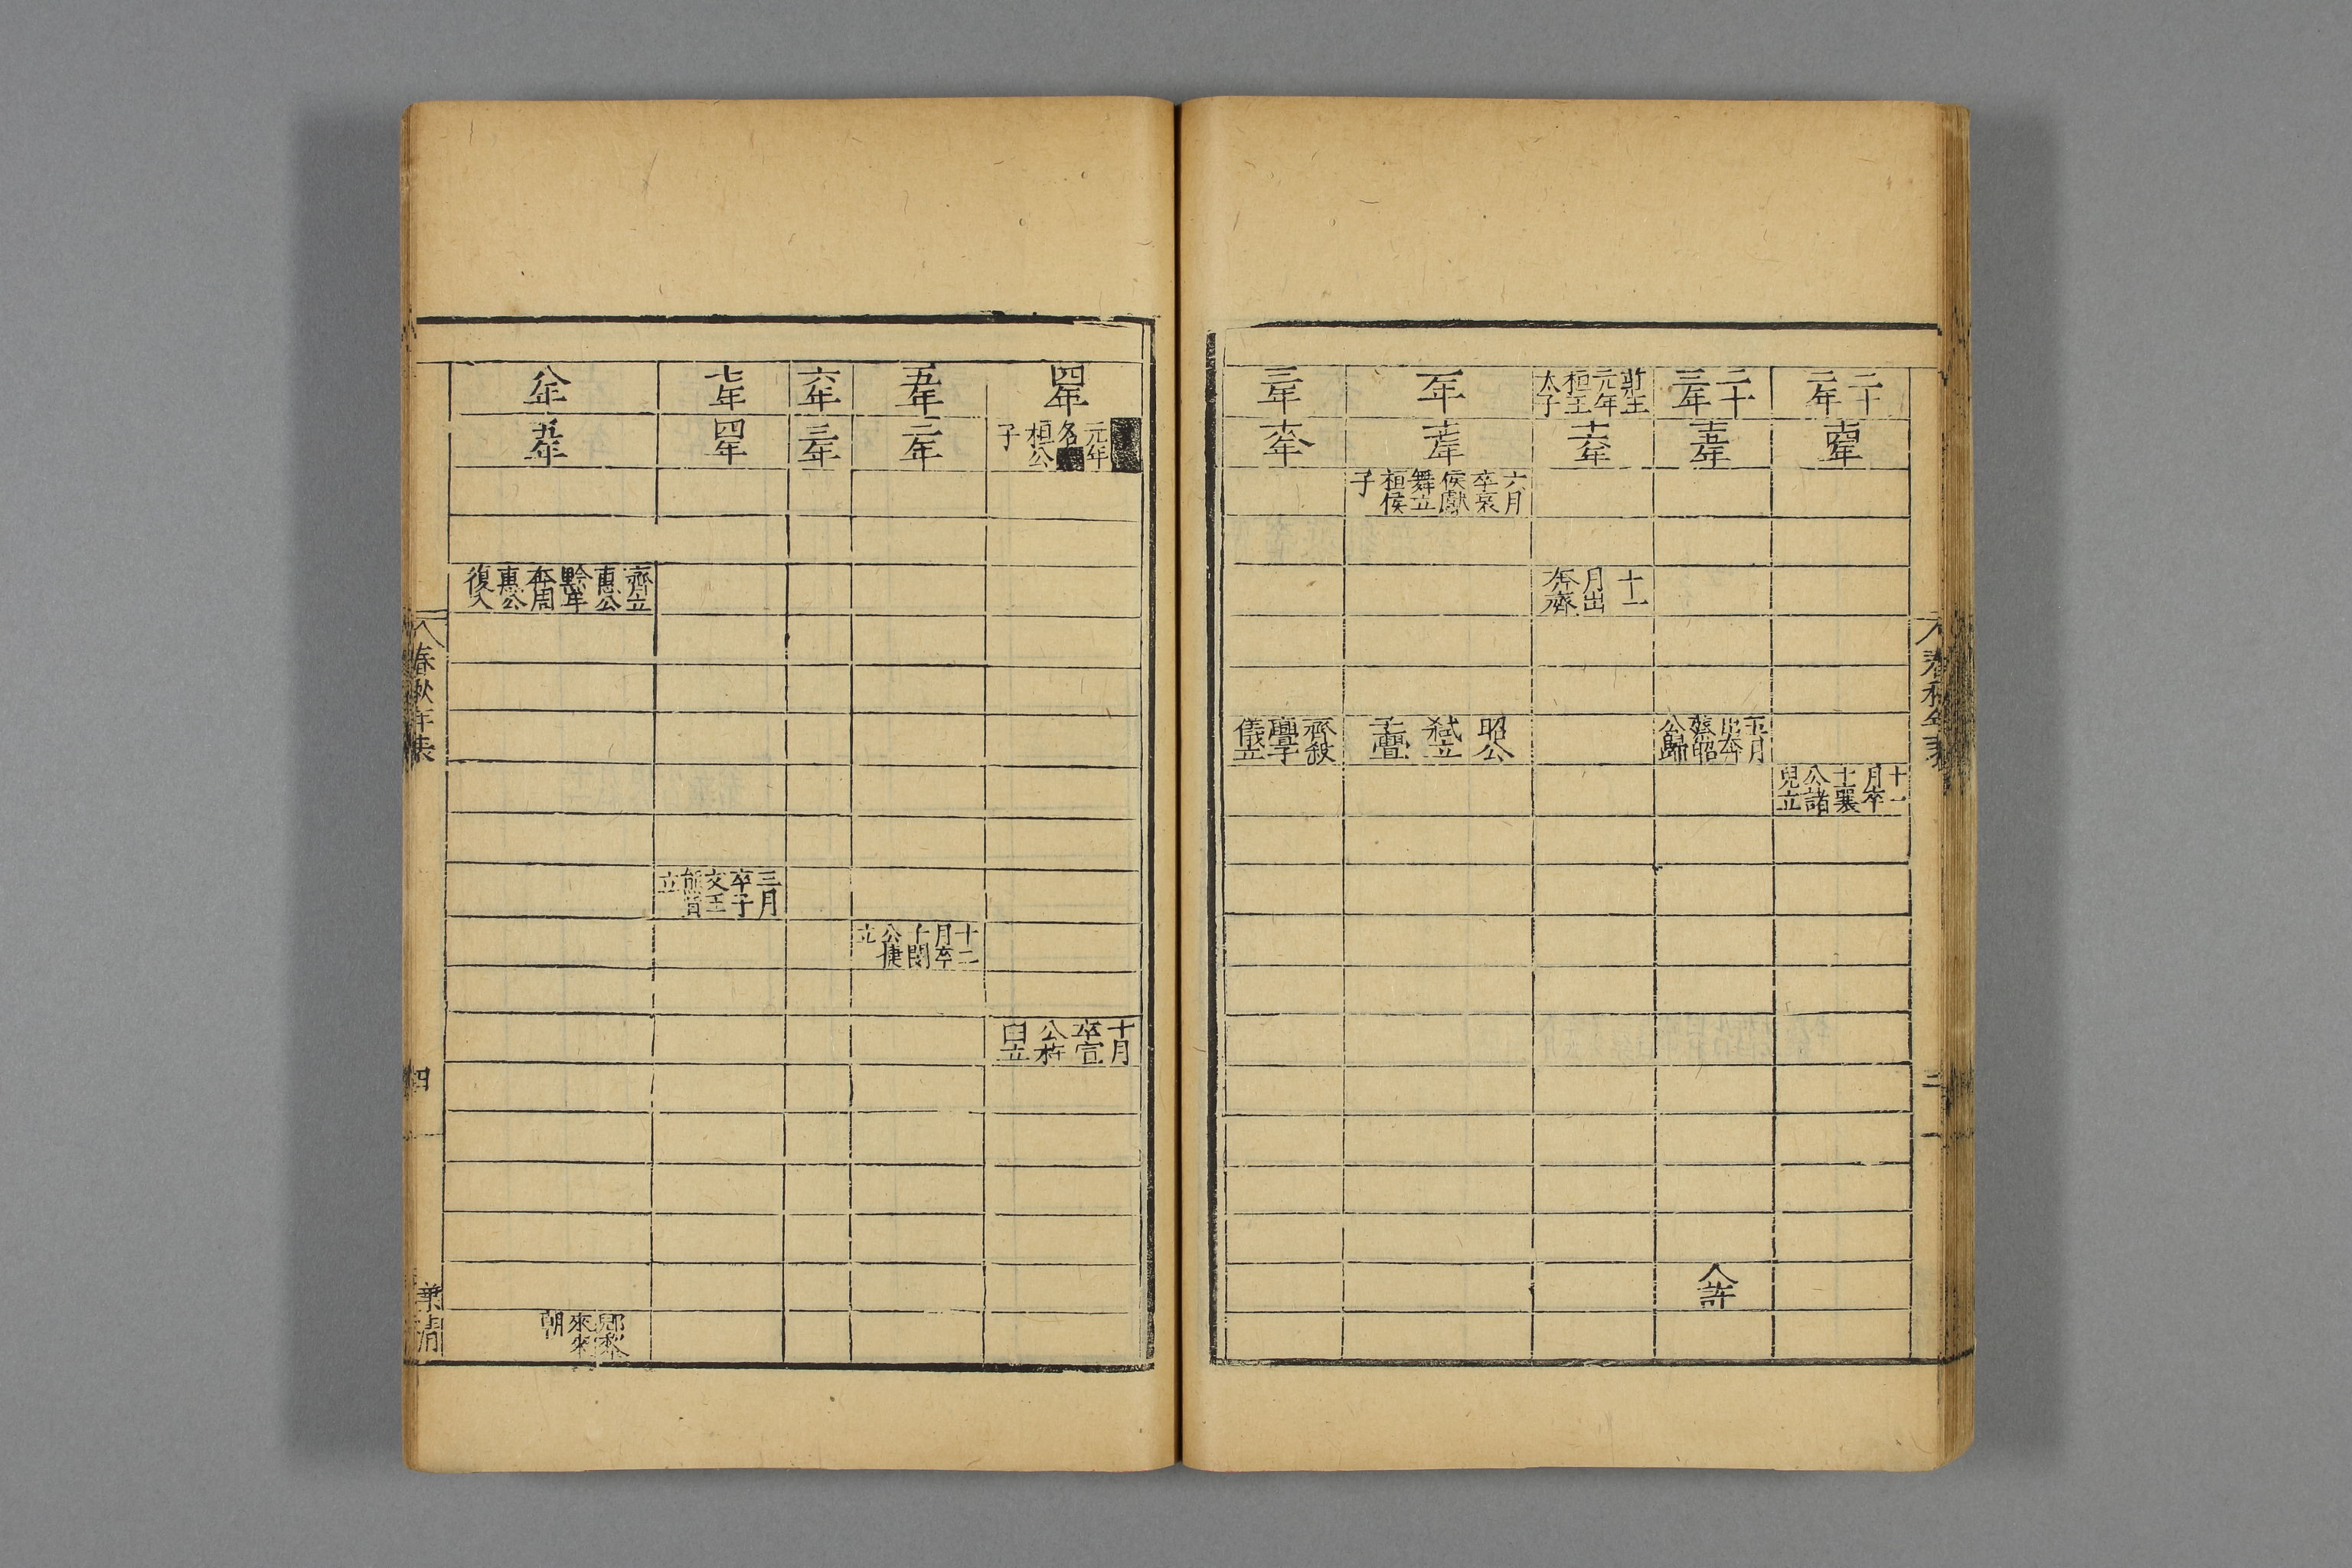 二十二年
十四年
十一月卒
十二襄公諸兒立
二十三年
十五年
五月出奔蔡昭公歸
入許
莊王元年桓王太子
十六年
十一月出奔齊
二年
十七年
六月卒哀侯獻舞立桓侯子
昭公弑立子亹
三年
十八年
齊殺亹子儀立
四年
元年名
桓公子
十月卒宣公杵臼立
五年
二年
十二月卒子閔公捷立
六年
三年
七年
四年
三月卒子文王熊貲立
八年
五年
齊立惠公黔牟奔周惠公復入
郳黎來來朝
春秋年表
四